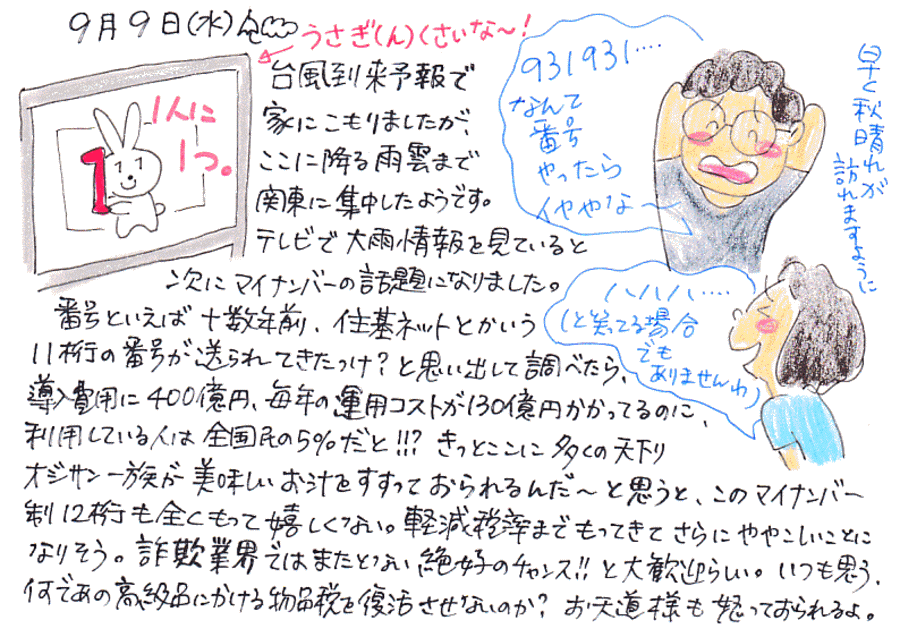 9月9日(水)
うさぎ(ん)くさいな〜!
1人に
1つ。
1
台風到来予報で
家にこもりましたが、
ここに降る雨雲まで
関東に集中したようです。
テレビで大雨情報を見ていると
次にマイナンバーの話題になりました。
番号といえば十数年前、住基ネットとかいう
11桁の番号が送られてきたっけ?と思い出して調べたら、
導入費用に400億円、毎年の運用コストが130億円かかってるのに、
利用している人は全国民の5%だと!!? きっとここに多くの天下り
オジサン一族が美味しいお汁をすすっておられるんだ〜と思うと、このマイナンバー
制12桁も全くもって嬉しくない。軽減税率までもってきてさらにややこしいことに
なりそう。詐欺業界ではまたとない絶好のチャンス!!と大歓迎らしい。いつも思う、
何であの高級品にかける物品税を復活させないのか? お天道様も怒っておられるよ。
931931‥‥
なんて
番号
やったら
イややな〜
ハハハ‥‥
(と笑てる場合
でも
ありませんわ)
早く秋晴れが
訪れますように